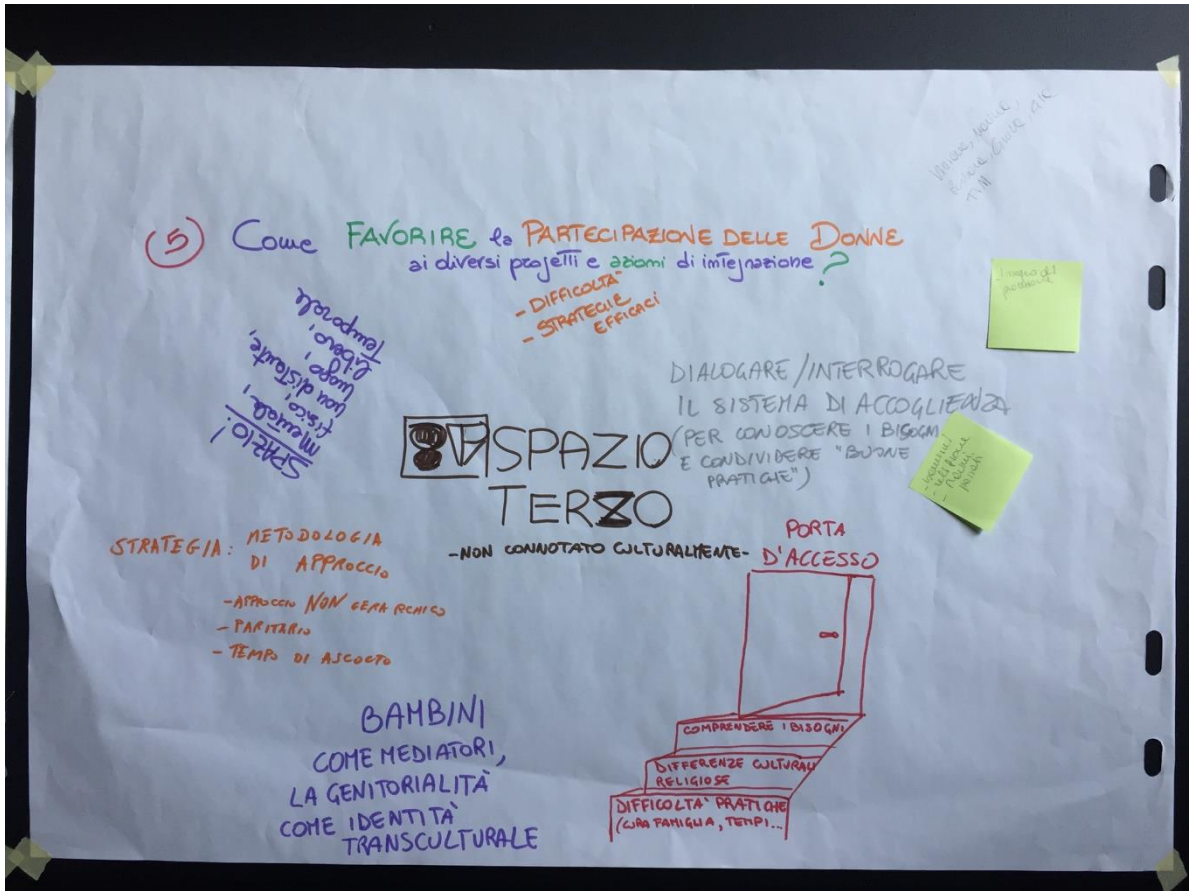 5 Come FAVORIRE la PARTECIPAZIONE DELLE DONNE
ai diversi progetti e azioni di integrazione ?
- DIFFICOLTÀ
- STRATEGIE
EFFICACI
SPAZIO!
mentale,
fisico,
non distante,
luogo,
libero,
Temporale
DIALOGARE/INTERROGARE
IL SISTEMA DI ACCOGLIENZA
(PER CONOSCERE I BISOGNI
E CONDIVIDERE "BUONE
PRATICHE")
SPAZIO
TERZO
-NON CONNOTATO CULTURALMENTE-
STRATEGIA: METODOLOGIA
DI APPROCCIO
- APPROCCIO NON GERARCHICO
- PARITARIO
- TEMPO DI ASCOLTO
PORTA
D'ACCESSO
COMPRENDERE I BISOGNI
DIFFERENZE CULTURALI
RELIGIOSE
DIFFICOLTA' PRATICHE
(CURA FAMIGLIA, TEMPI...
BAMBINI
COME MEDIATORI,
LA GENITORIALITÀ
COME IDENTITÀ
TRANSCULTURALE